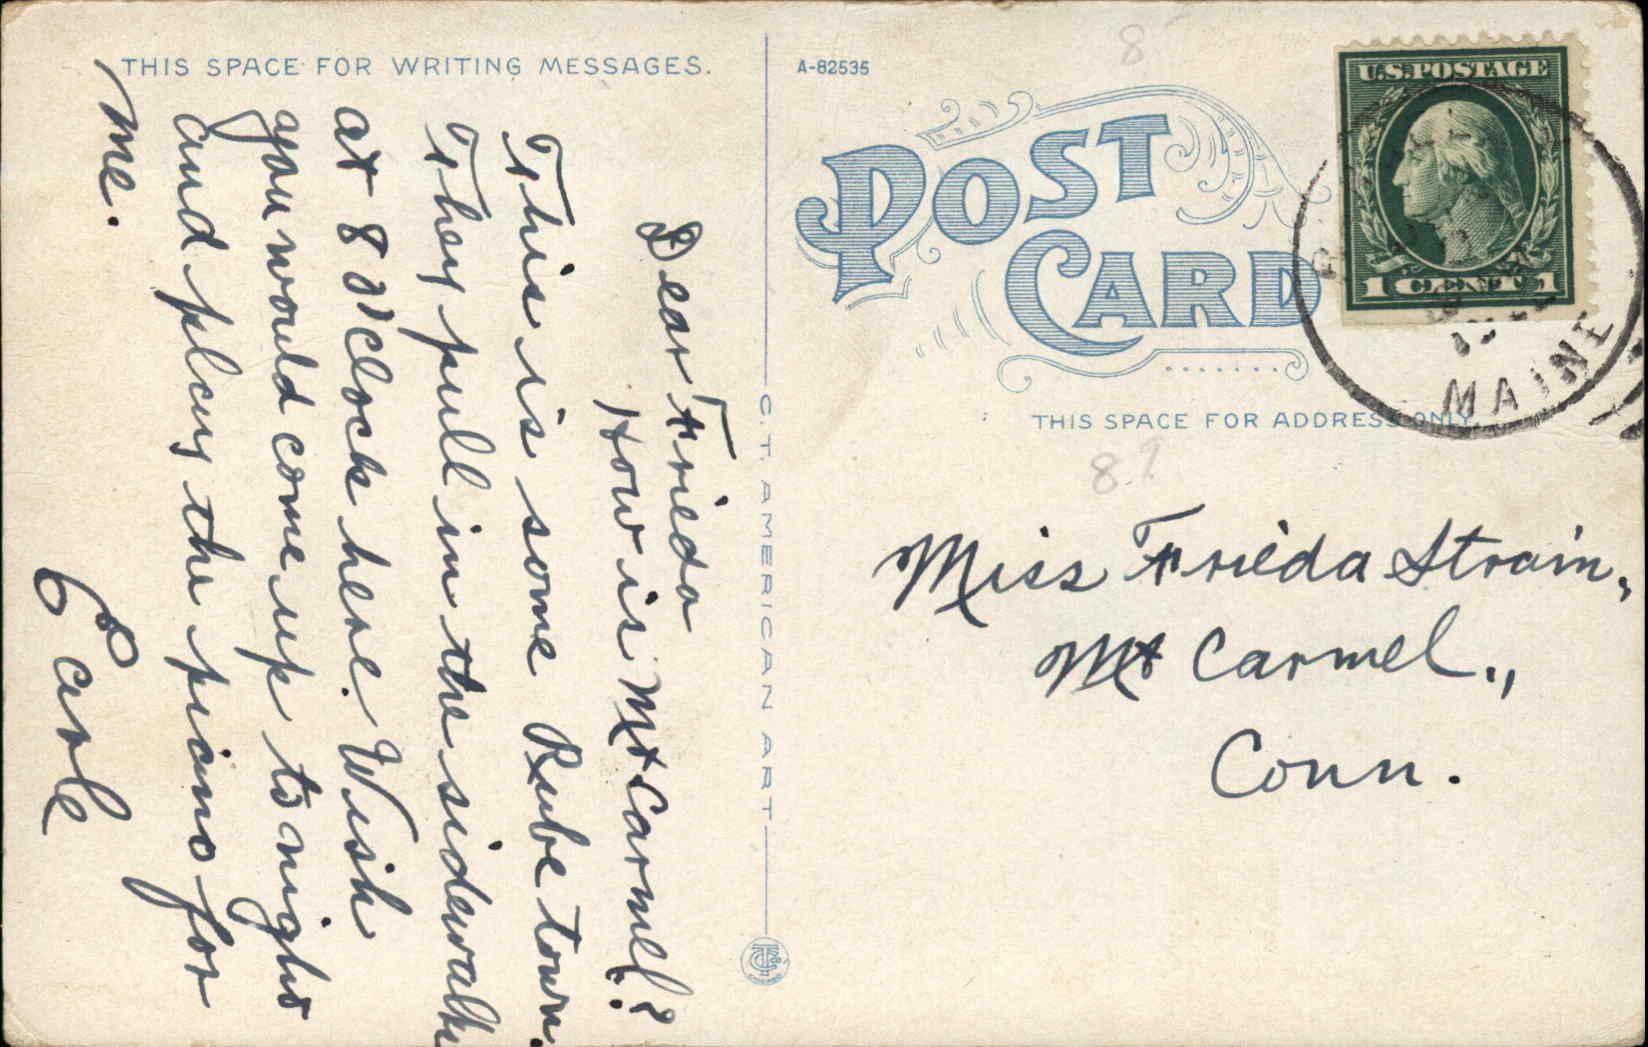 THIS SPACE FOR WRITING MESSAGES.
Dear Frieda
How is Mt Carmel?
This is some Rube town.
They pull in the sidewalk
at 8 o'clock here. Wish
you would come up to night
and play the piano for
me.
Earle
C. T. AMERICAN ART
A-82535
POST
CARD
THIS SPACE FOR ADDRESS ONLY
U.S. POSTAGE
1 CENT 1
MAINE
8
8?
Miss Frieda Strain,
Mt Carmel.,
Conn.